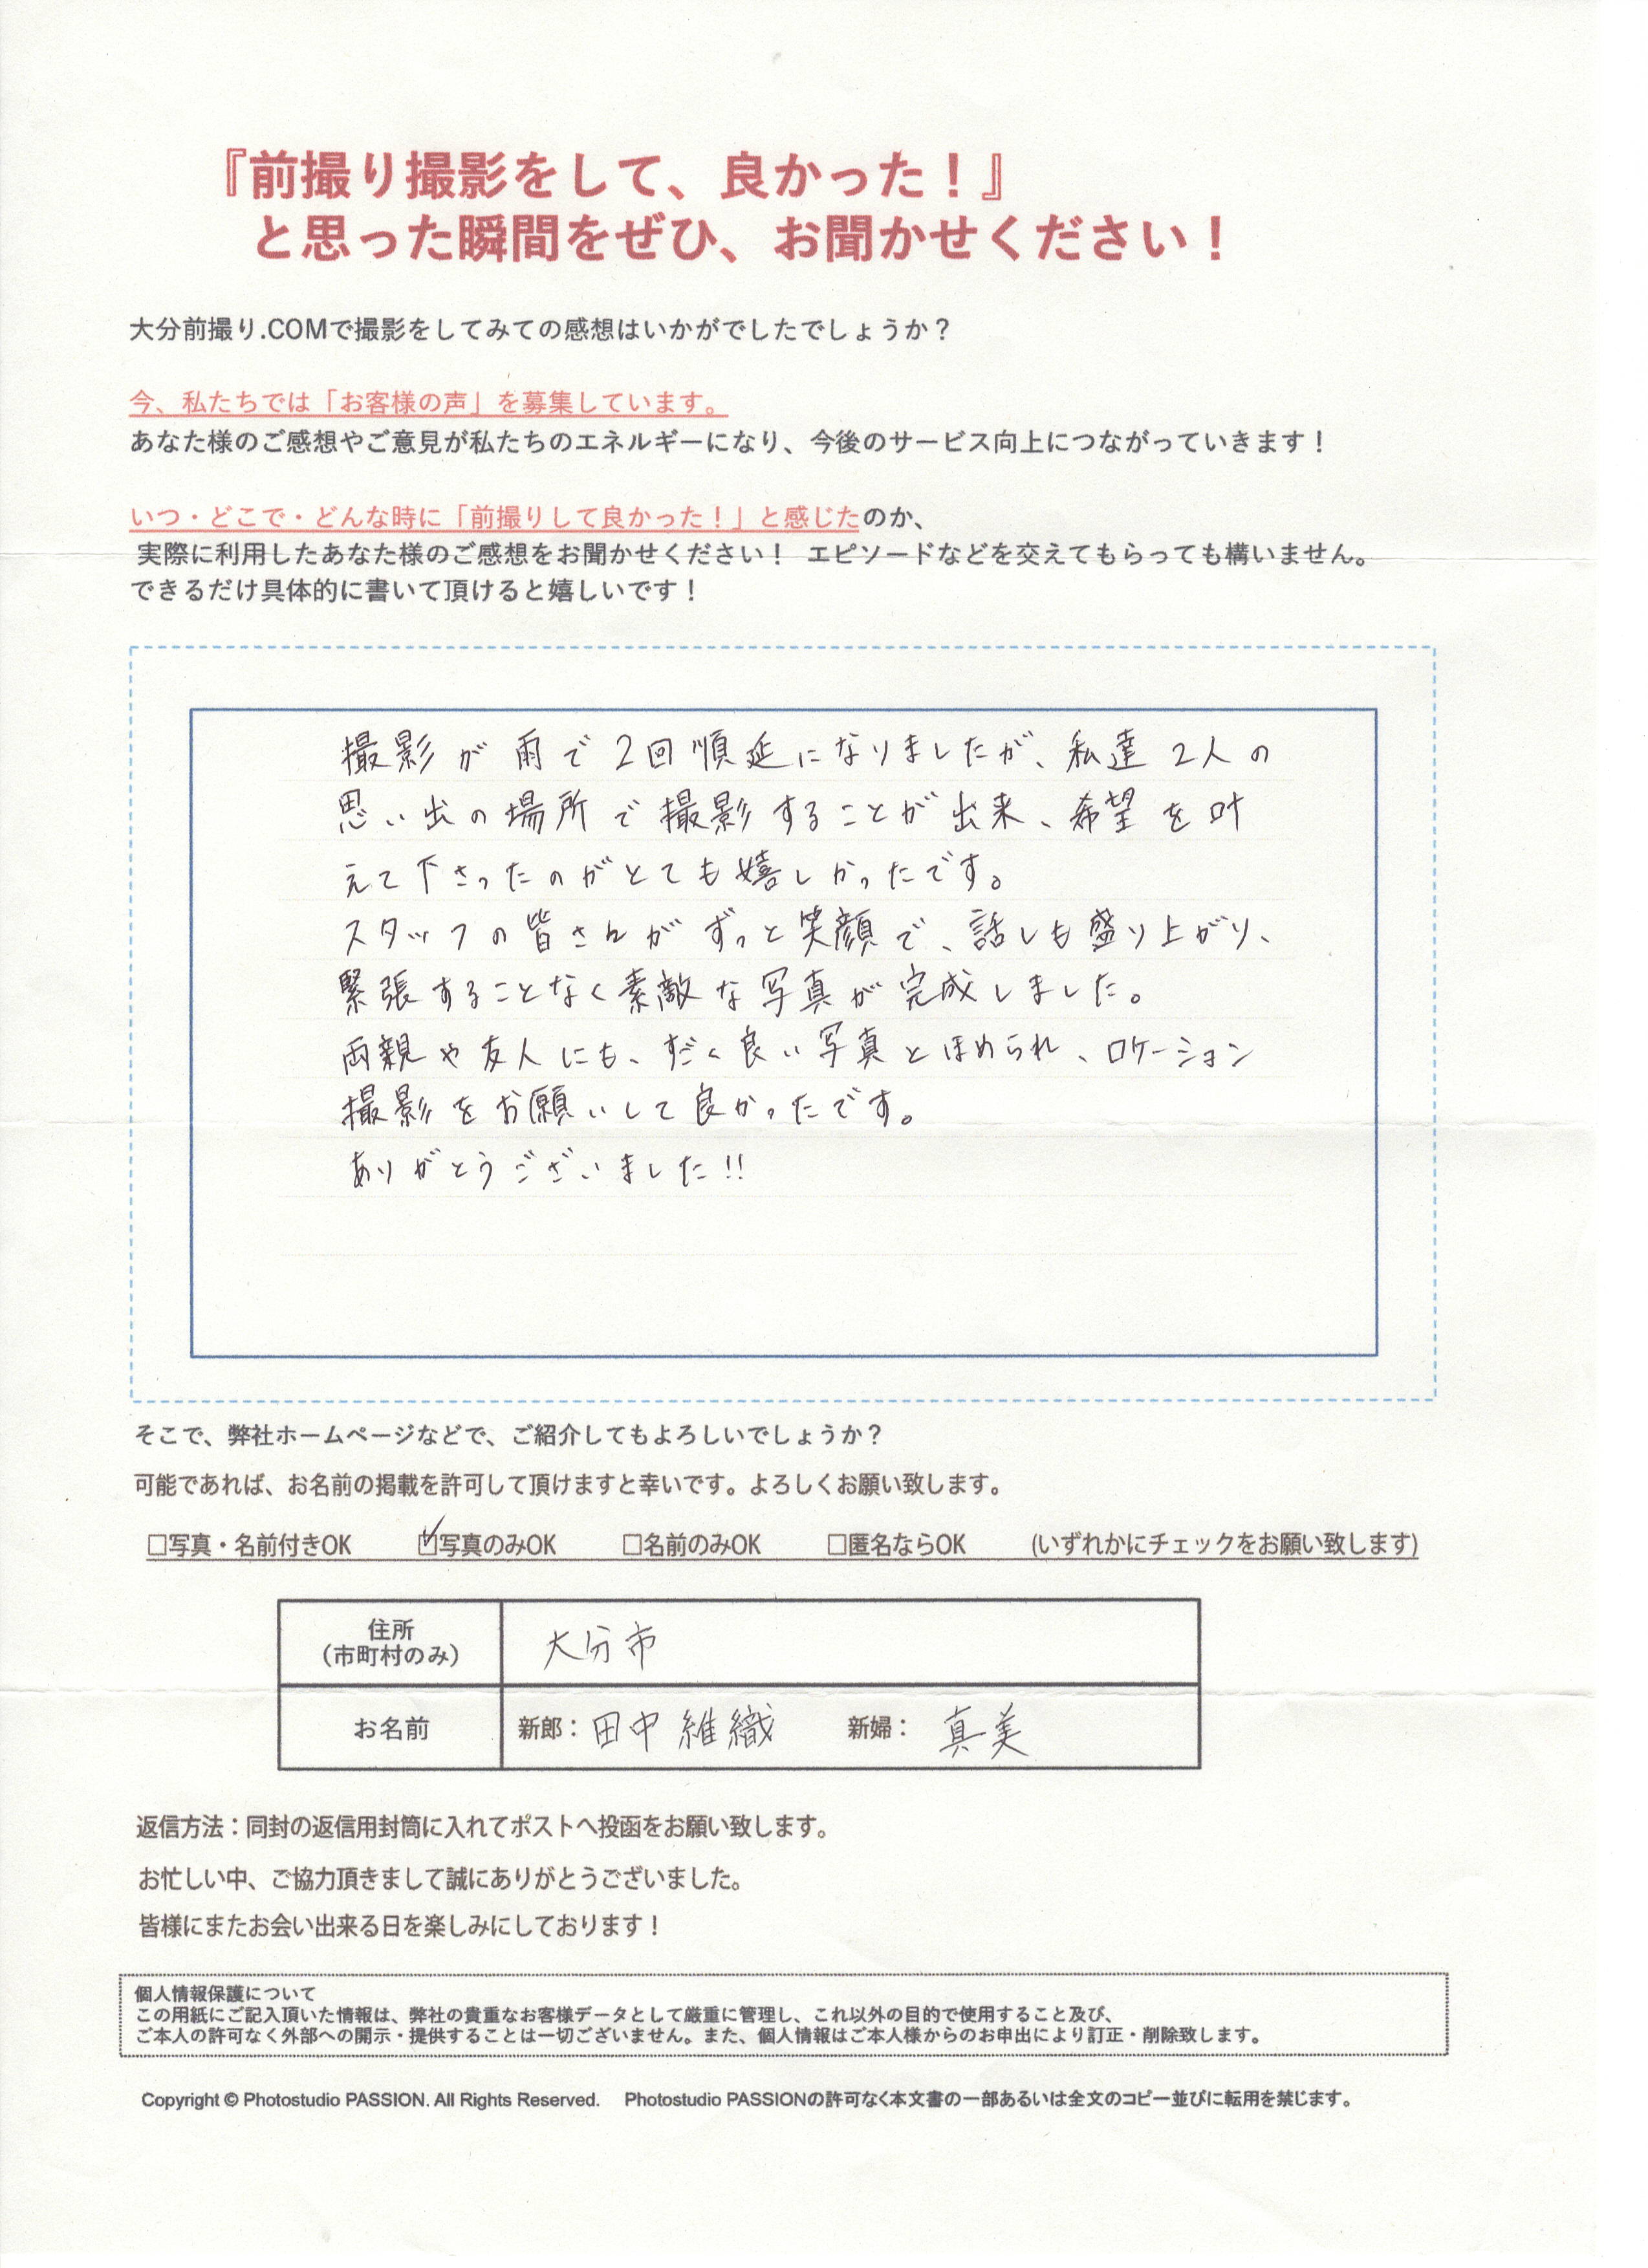 『前撮り撮影をして、良かった！』
と思った瞬間をぜひ、お聞かせください！
大分前撮り.COMで撮影をしてみての感想はいかがでしたでしょうか？
今、私たちでは「お客様の声」を募集しています。
あなた様のご感想やご意見が私たちのエネルギーになり、今後のサービス向上につながっていきます！
いつ・どこで・どんな時に「前撮りして良かった！」と感じたのか、
実際に利用したあなた様のご感想をお聞かせください！ エピソードなどを交えてもらっても構いません。
できるだけ具体的に書いて頂けると嬉しいです！
撮影が雨で2回順延になりましたが、私達2人の
思い出の場所で撮影することが出来、希望を叶
えて下さったのがとても嬉しかったです。
スタッフの皆さんがずっと笑顔で、話しも盛り上がり、
緊張することなく素敵な写真が完成しました。
両親や友人にも、すごく良い写真とほめられ、ロケーション
撮影をお願いして良かったです。
ありがとうございました!!
そこで、弊社ホームページなどで、ご紹介してもよろしいでしょうか？
可能であれば、お名前の掲載を許可して頂けますと幸いです。よろしくお願い致します。
□写真・名前付きOK ☑写真のみOK □名前のみOK □匿名ならOK (いずれかにチェックをお願い致します)
住所
（市町村のみ）
大分市
お名前 新郎：田中維織 新婦：真美
返信方法：同封の返信用封筒に入れてポストへ投函をお願い致します。
お忙しい中、ご協力頂きまして誠にありがとうございました。
皆様にまたお会い出来る日を楽しみにしております！
個人情報保護について
この用紙にご記入頂いた情報は、弊社の貴重なお客様データとして厳重に管理し、これ以外の目的で使用すること及び、
ご本人の許可なく外部への開示・提供することは一切ございません。また、個人情報はご本人様からのお申出により訂正・削除致します。
Copyright © Photostudio PASSION. All Rights Reserved. Photostudio PASSIONの許可なく本文書の一部あるいは全文のコピー並びに転用を禁じます。